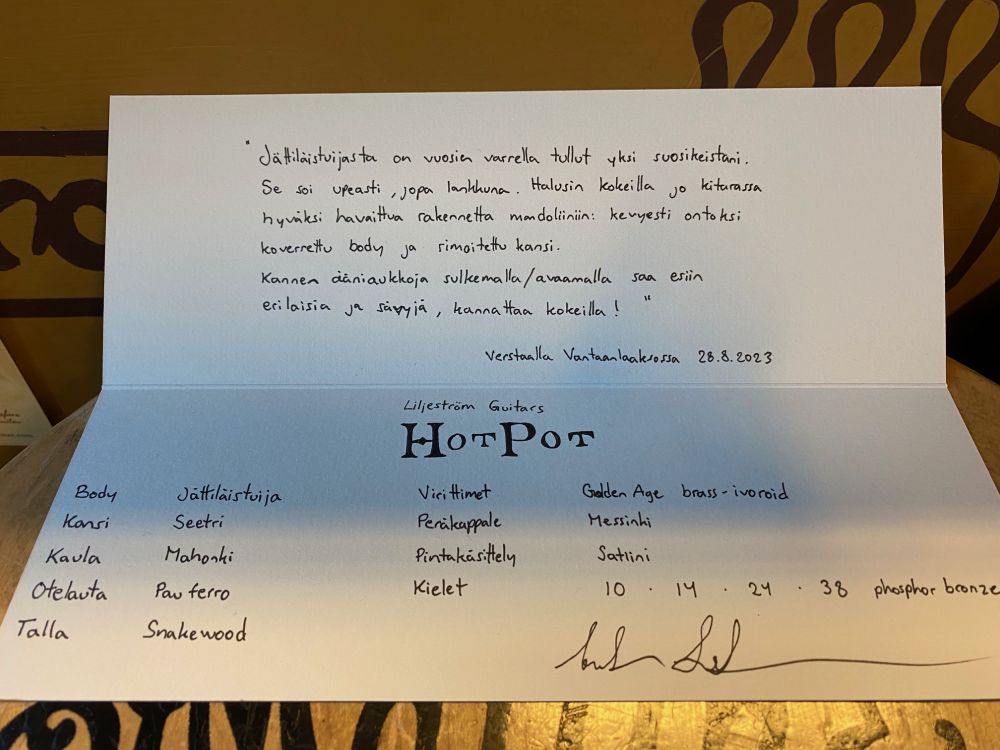 " Jättiläistuijasta on vuosien varrella tullut yksi suosikeistani.
Se soi upeasti, jopa lankkuna. Halusin kokeilla jo kitarassa
hyväksi havaittua rakennetta mandoliiniin: kevyesti ontoksi
koverrettu body ja rimoitettu kansi.
Kannen ääniaukkoja sulkemalla/avaamalla saa esiin
erilaisia ja sävyjä, kannattaa kokeilla! "
Verstaalla Vantaanlaaksossa 28.8.2023
Liljeström Guitars
HOTPOT
Body Jättiläistuija Virittimet Golden Age brass-ivoroid
Kansi Seetri Peräkappale Messinki
Kaula Mahonki Pintakäsittely Satiini
Otelauta Pau ferro Kielet 10 · 14 · 24 · 38 phosphor bronze
Talla Snakewood